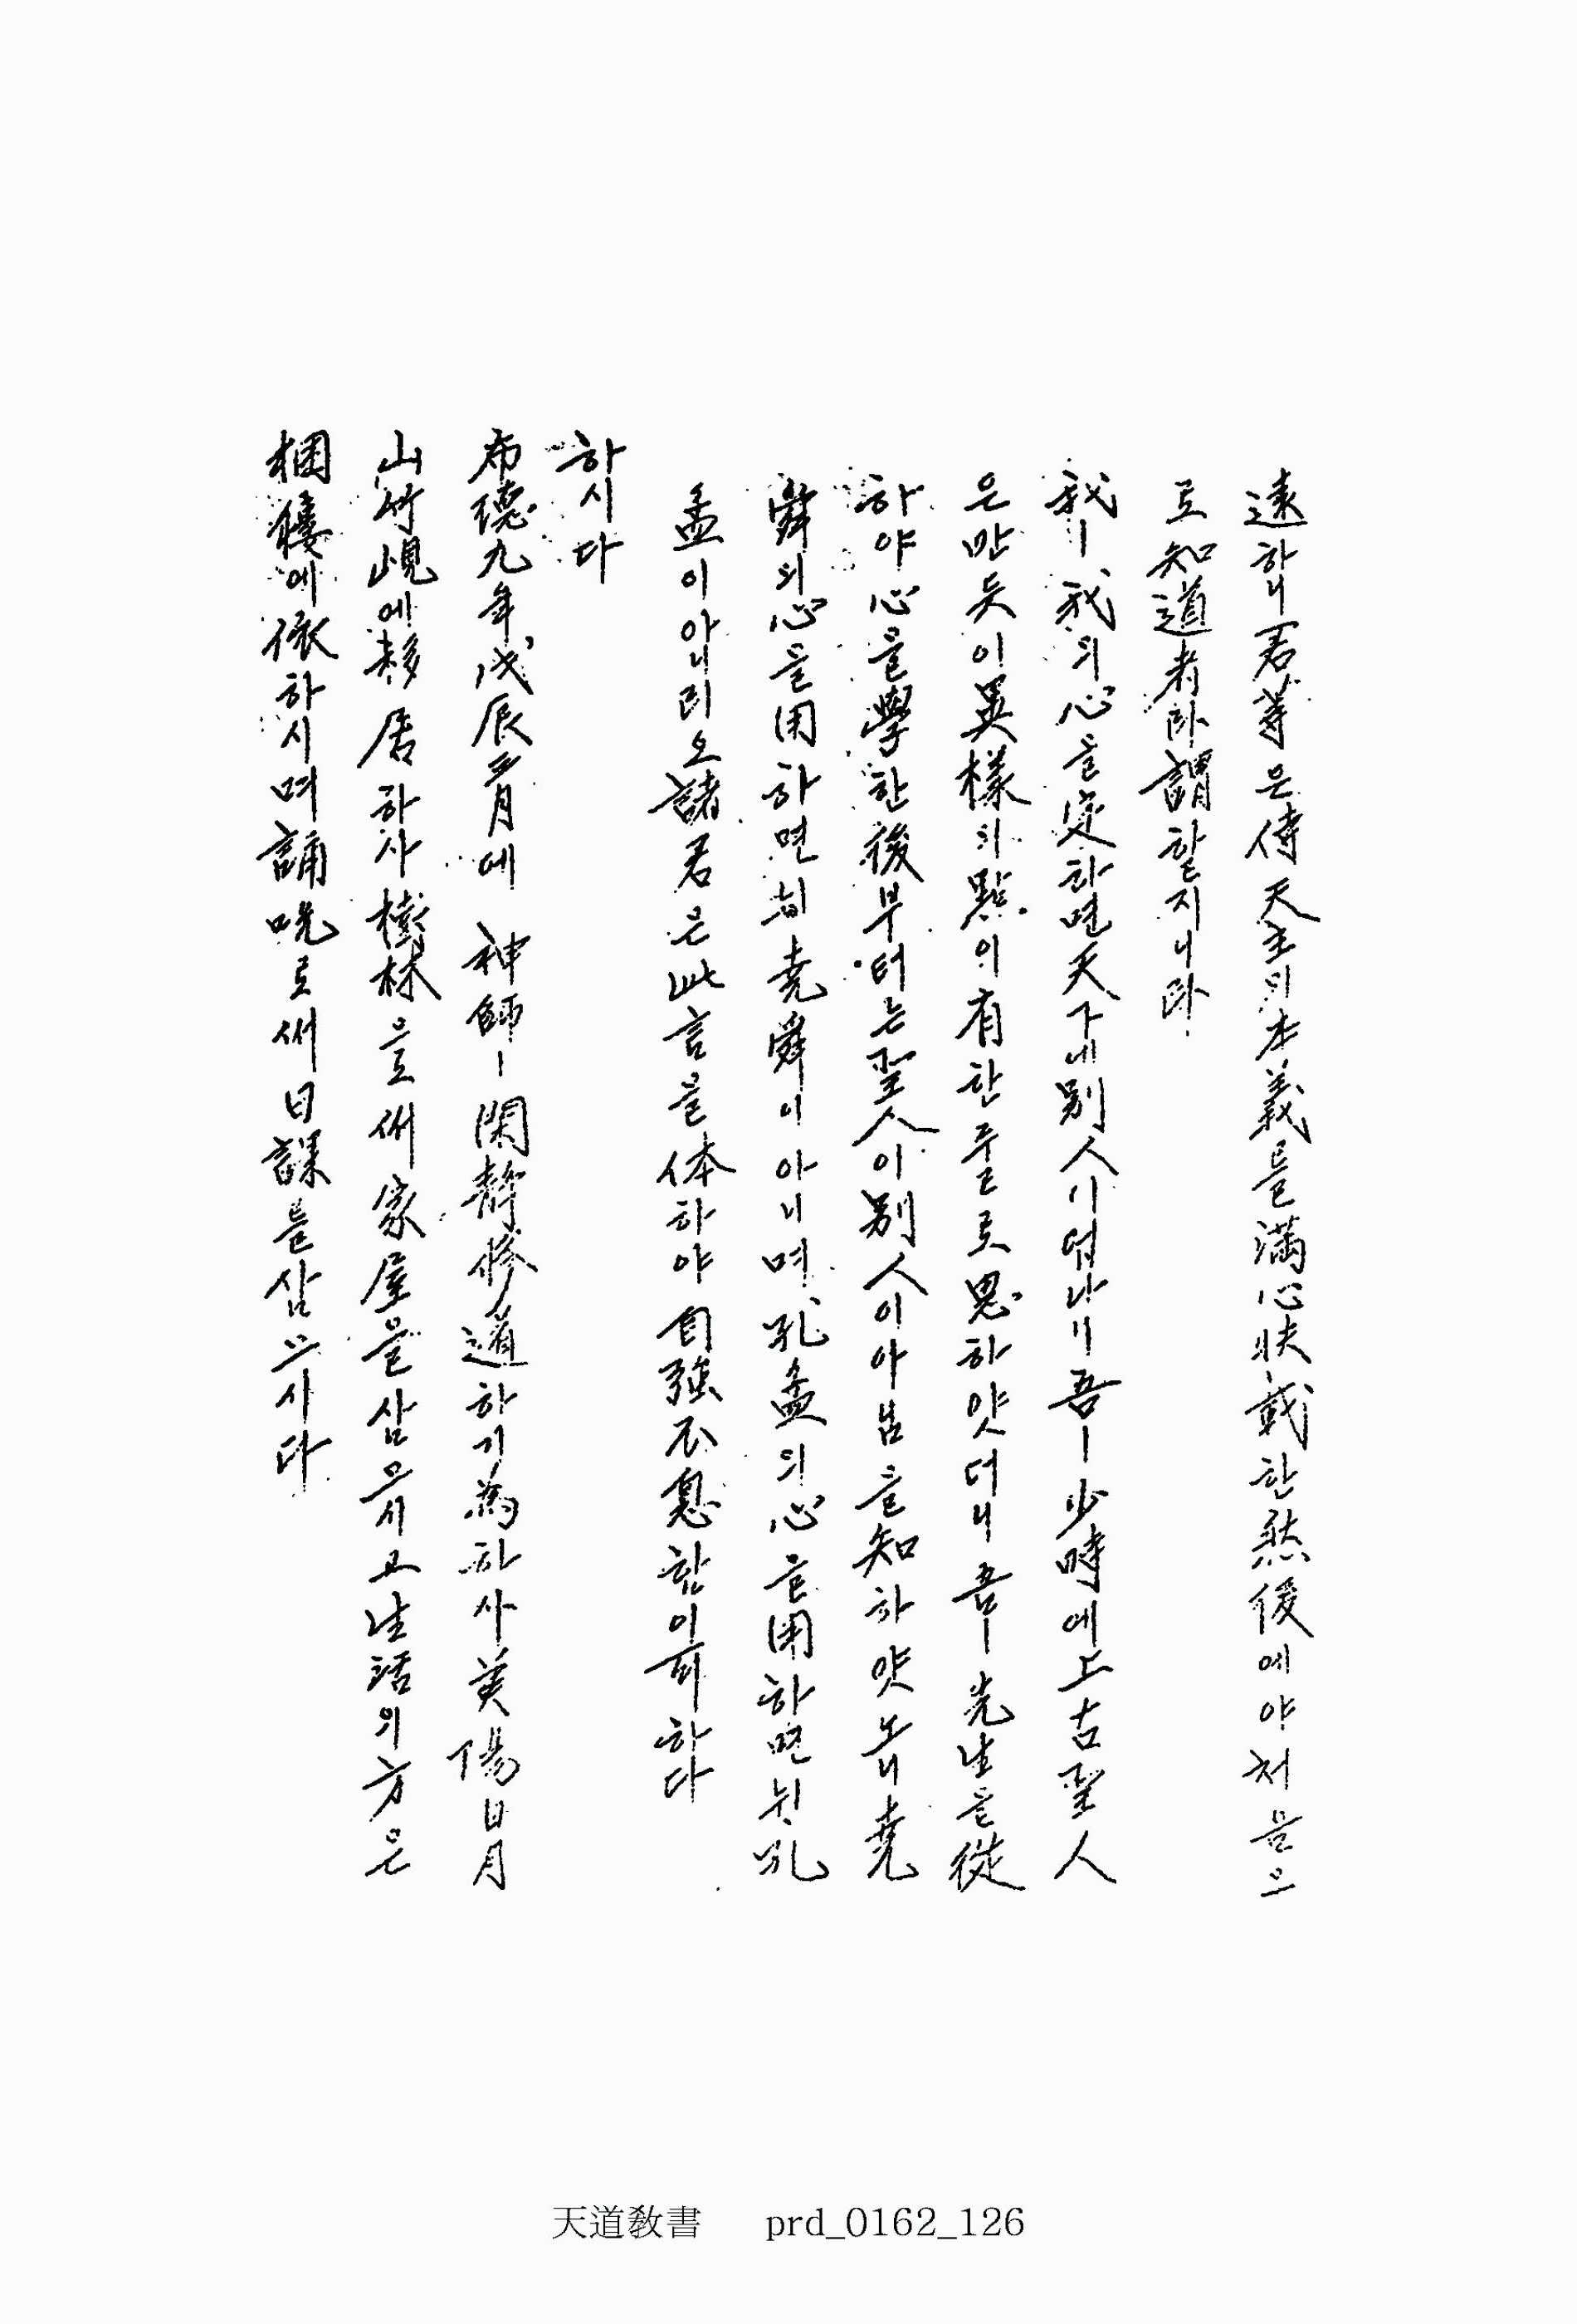 遠하니 君等은 侍天主의 本義를 滿心狀載한 然後에야 처음으
로 知道者라 謂할지니라
我ㅣ 我의 心을 定하면 天下에 別人이 업나니 吾ㅣ 少時에 上古聖人
은 만듯이 異樣의 點이 有한 줄로 思하얏더니 吾ㅣ 先生을 從
하야 心을 學한 後부터는 聖人이 別人이 아님을 知하얏노니 堯
舜의 心을 用하면 뉘 堯舜이 아니며 孔孟의 心을 用하면 뉘 孔
孟이 아니리오 諸君은 此言을 体하야 自強不息함이 可하다
하시다
布德九年戊辰三月에 神師ㅣ 閑靜修道하기 爲하사 英陽日月
山竹峴에 移居하사 樹林으로써 家屋을 삼으시고 生活의 方은
梱屨에 依하시며 誦呪로써 日課를 삼으시다
天道敎書 prd_0162_126